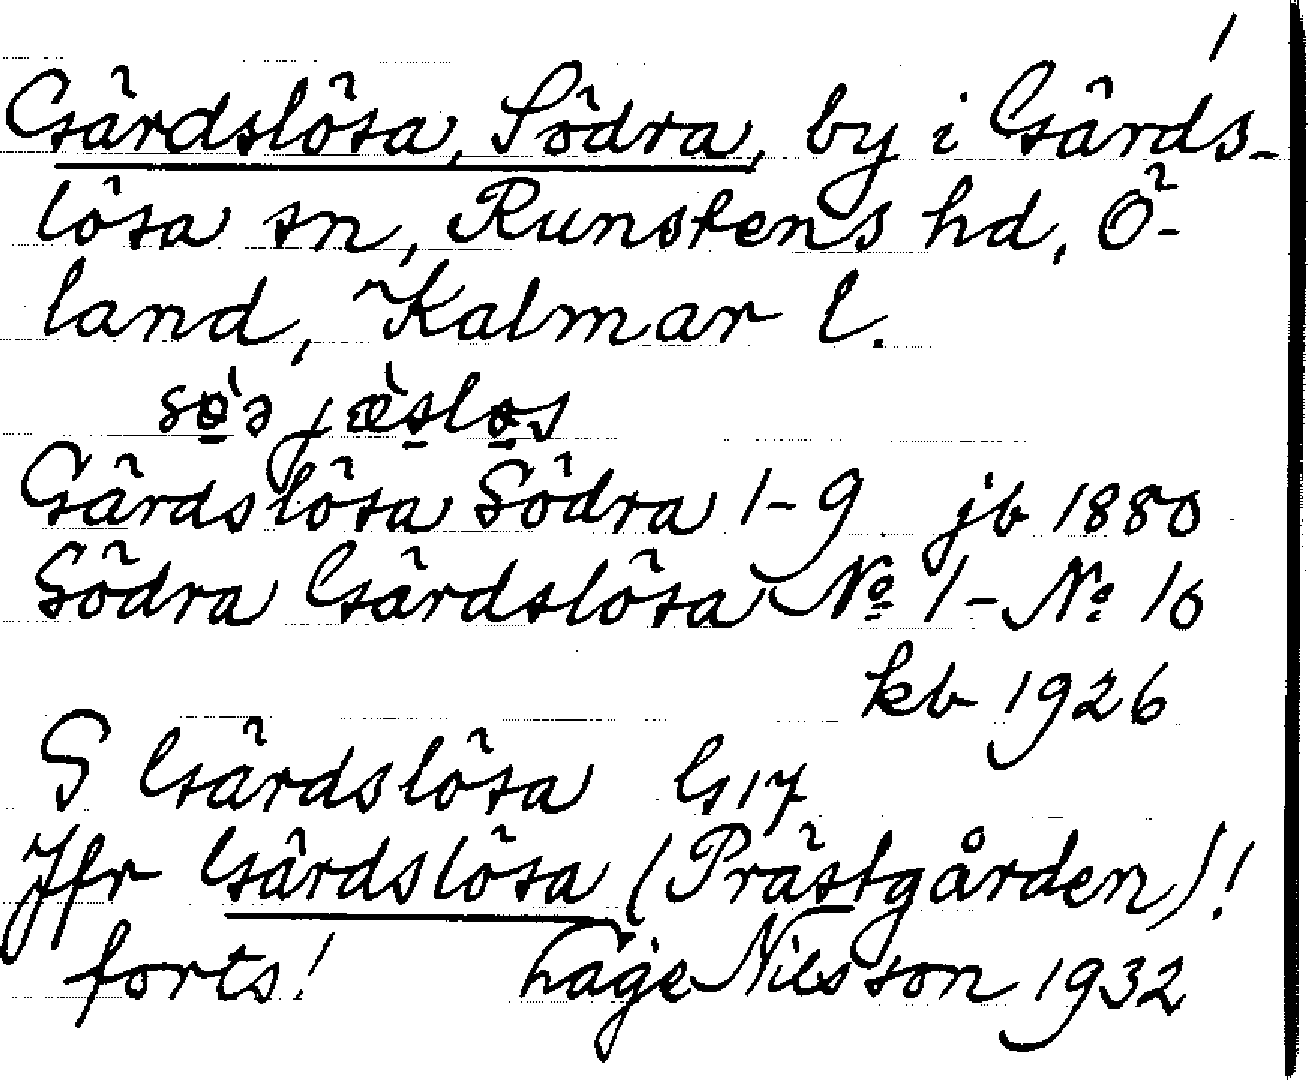 1
Gärdslösa, Södra, by i Gärds-
lösa sn, Runstens hd, Ö-
land, Kalmar l.
Gärdslösa Södra 1-9 jb 1880
Södra Gärdslösa No 1 - No 10
kb 1926
S Gärdslösa G 17
Jfr Gärdslösa (Prästgården)!
forts! Nilsson 1932